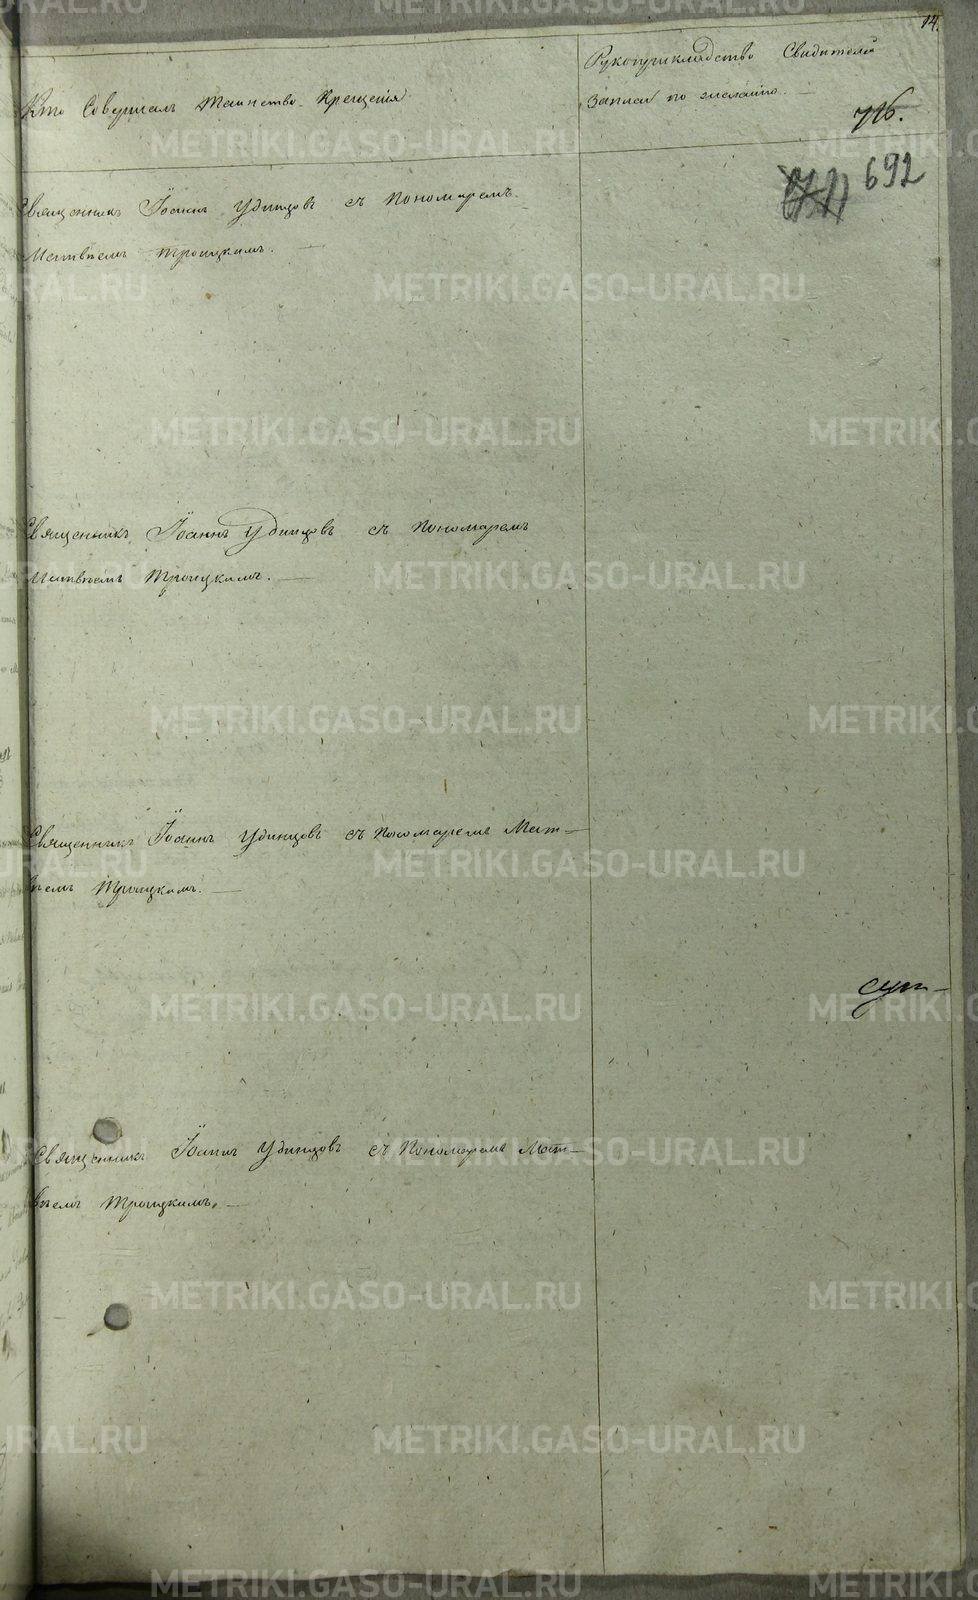 14.
Кто Совершалъ Таинство Крещенія
Рукоприкладство Свидетелей
Записи по желанію. —
716.
692
Священникъ Іоаннъ Удинцовъ съ Пономаремъ
Матвѣемъ Троицкимъ. —
Священникъ Іоаннъ Удинцовъ съ Пономаремъ
Матвѣемъ Троицкимъ. —
Священникъ Іоаннъ Удинцовъ съ Пономаремъ Мат-
вѣемъ Троицкимъ. —
Священникъ Іоаннъ Удинцовъ съ Пономаремъ Мат-
вѣемъ Троицкимъ. —
METRIKI.GASO-URAL.RU